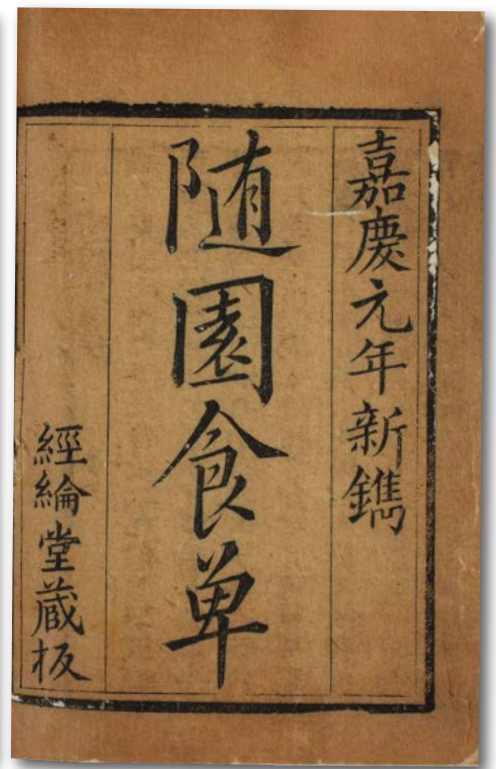 嘉慶元年新鐫
随園食单
經綸堂藏板